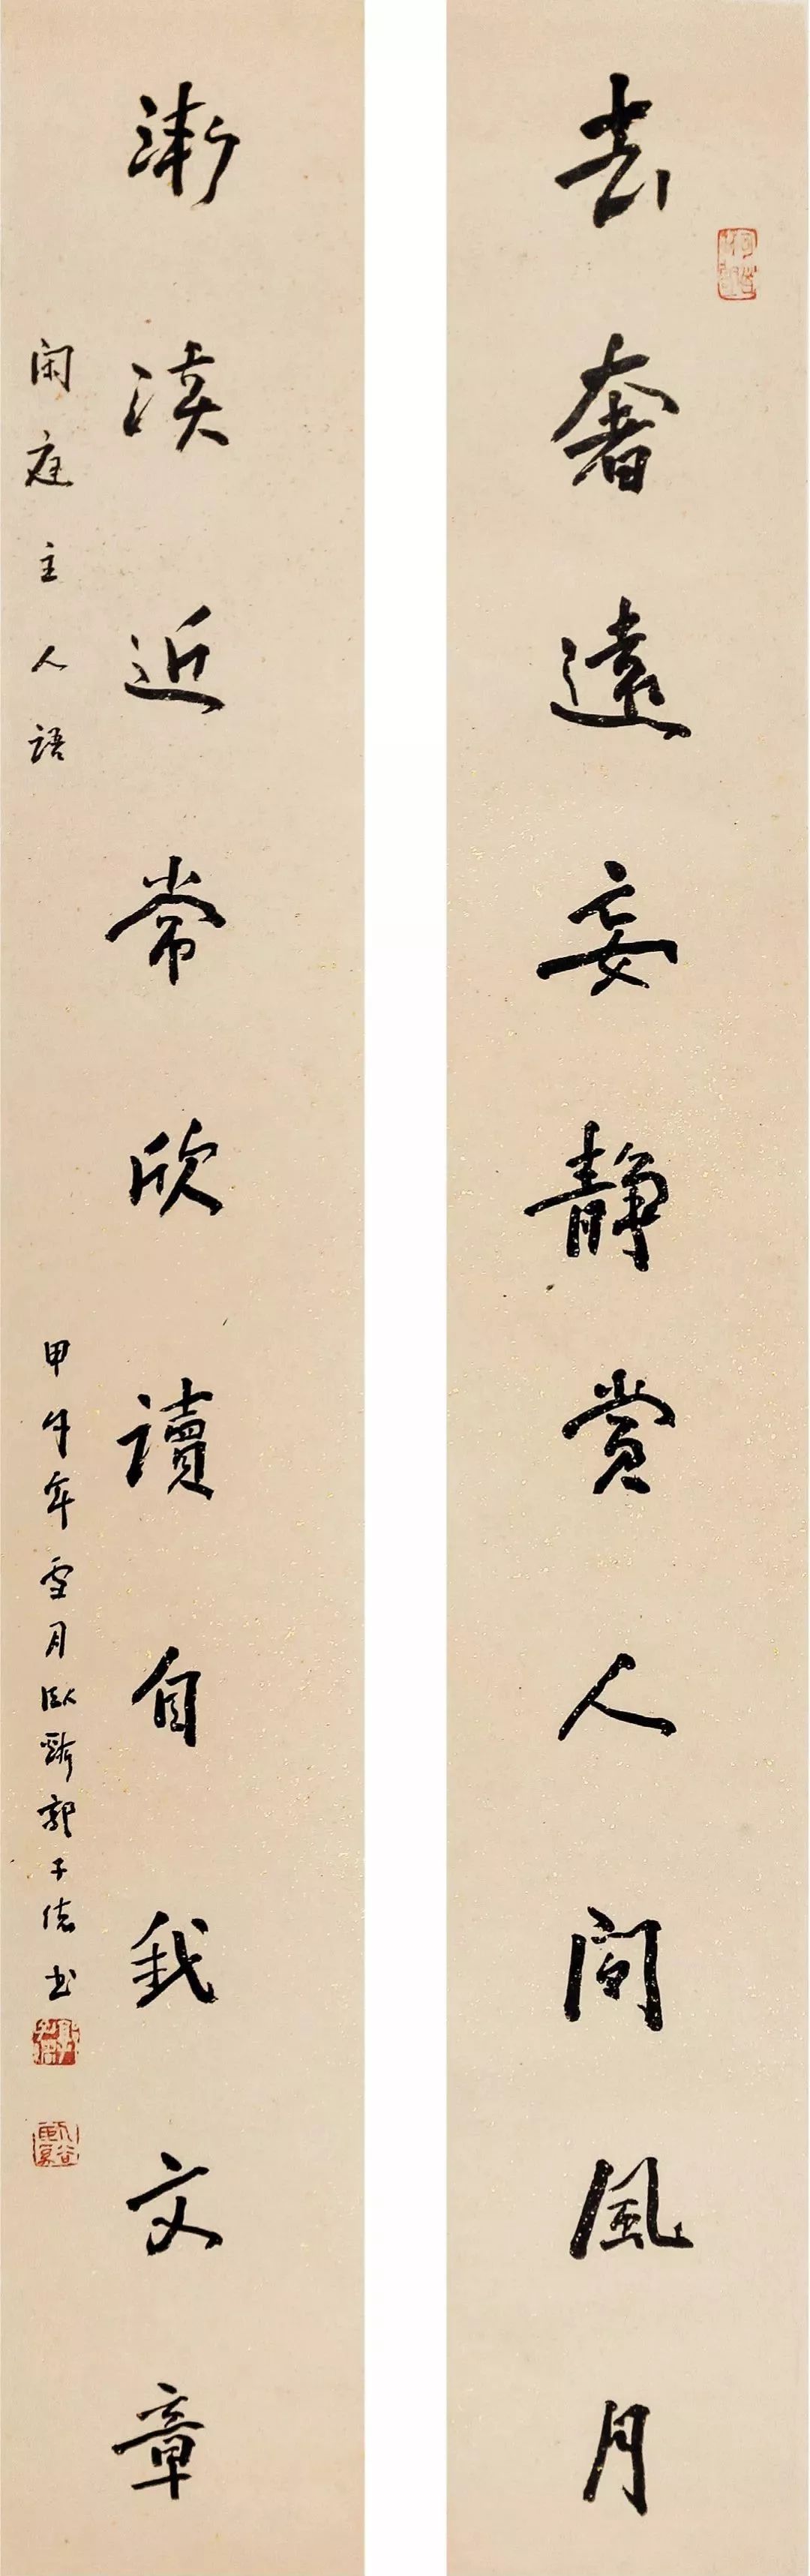 去奢遠妄静賞人間風月
漸漠近常欣讀自我文章
闲庭主人語
甲午年雪月臥谿郭子德书